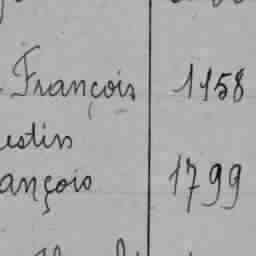 François 1158
estin
ançois 1799